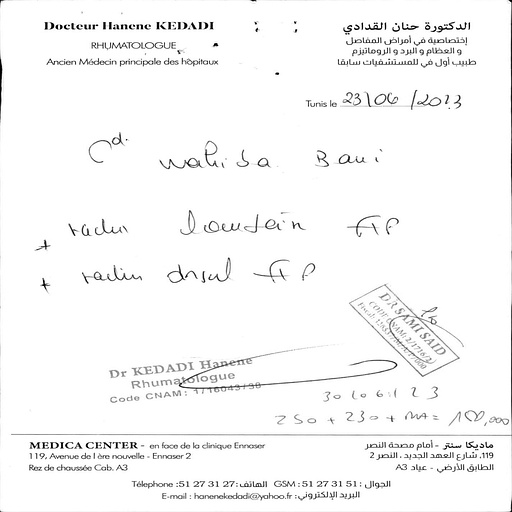 Docteur Hanene KEDADI
RHUMATOLOGUE
Ancien Médecin principale des hôpitaux
الدكتورة حنان القدادي
إختصاصية في أمراض المفاصل
و العظام و البرد و الروماتيزم
طبيب أول في للمستشفيات سابقا
Tunis le 23/06/2023
wahida Bani
+ radio F+P
+ radio dorsal F+P
DR SAMI SAID
Dr KEDADI Hanene
Rhumatologue
Code CNAM: 1/16043/38
30/06/23
250 + 230 + MA =
MEDICA CENTER - en face de la clinique Ennaser
119, Avenue de l ère nouvelle - Ennaser 2
Rez de chaussée Cab. A3
ماديكا سنتر - أمام مصحة النصر
119، شارع العهد الجديد ، النصر 2
الطابق الأرضي - عياد A3
Télephone :51 27 31 27: الهاتف GSM : 51 27 31 51 : الجوال
E-mail : hanenekedadi@yahoo.fr : البريد الإلكتروني